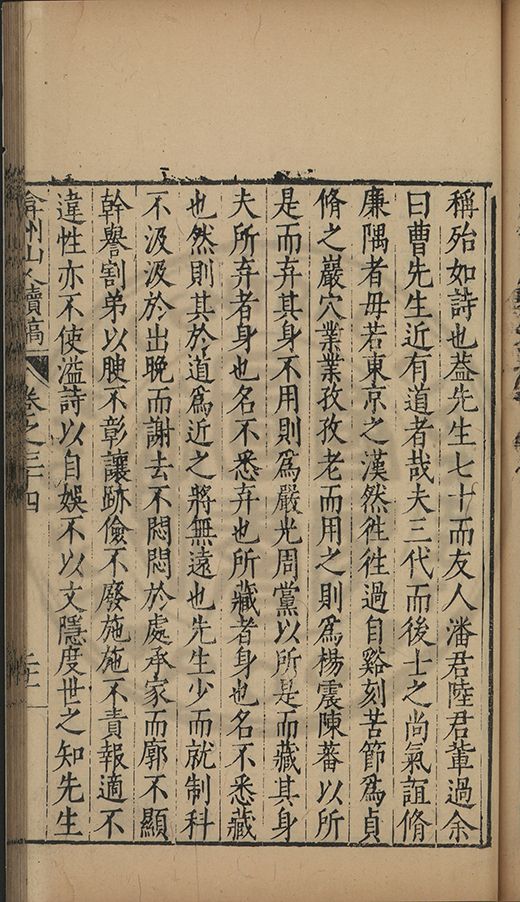 稱殆如詩也葢先生七十而友人潘君陸君軰過余
曰曹先生近有道者哉夫三代而後士之尚氣誼脩
廉隅者毋若東京之漢然徃徃過自谿刻苦節爲貞
脩之巖穴業業孜孜老而用之則爲楊震陳蕃以所
是而弃其身不用則爲嚴光周黨以所是而藏其身
夫所弃者身也名不悉弃也所藏者身也名不悉藏
也然則其於道爲近之將無遠也先生少而就制科
不汲汲於出晚而謝去不悶悶於處承家而廓不顯
幹譽割弟以腴不彰讓跡儉不廢施施不責報適不
違性亦不使溢詩以自娛不以文隱度世之知先生
弇州山人續稿 卷之三十四